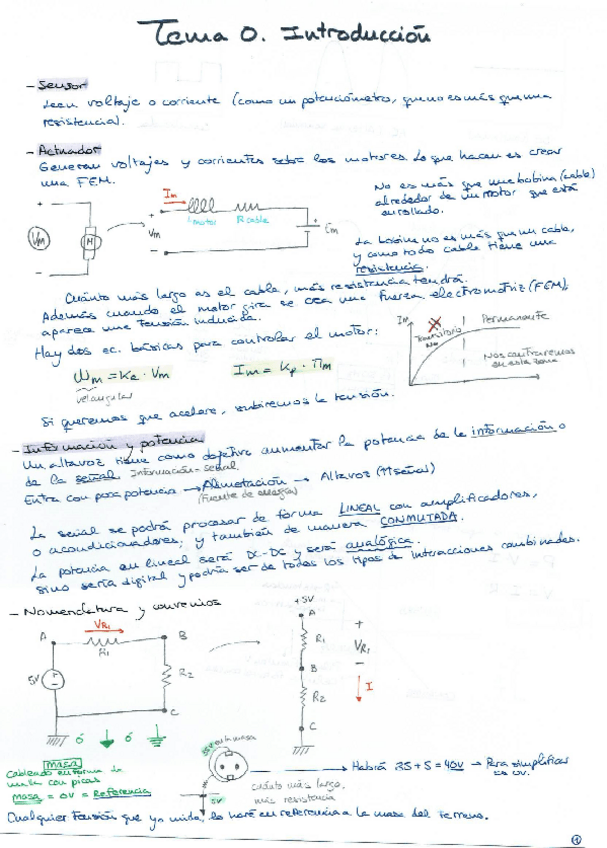 Tema 0. Introducción
- Sensor
Leen voltaje o corriente (como un potenciómetro, que no es más que una
resistencia).
- Actuador
Generan voltajes y corrientes sobre los motores. Lo que hacen es crear
una FEM.
No es más que una bobina (cable)
alrededor de un motor que está
enrollado.
+
Vm
M
-
Im
+
Vm
-
Lmotor
Rcable
+
Em
La bobina no es más que un cable,
y como todo cable tiene una
resistencia.
Cuánto más largo es el cable, más resistencia tendrá.
Además cuando el motor gira se crea una fuerza electromotriz (FEM),
aparece una tensión inducida.
Hay dos ec. básicas para controlar el motor:
Wm = Ke · Vm
Im = Kp · Πm
vel angular
Im
X
Transitorio
No
Permanente
Nos centraremos
en esta zona
Si queremos que acelere, subiremos la tensión.
- Información y potencia
Un altavoz tiene como objetivo aumentar la potencia de la información o
de la señal Información-señal
Entra con poca potencia → Alimentación → Altavoz (↑↑señal)
(Fuente de energía)
La señal se podrá procesar de forma LINEAL con amplificadores,
o acondicionadores, y también de manera CONMUTADA.
La potencia en lineal será DC-DC y será analógica.
sino sería digital y podría ser de todos los tipos de interacciones combinadas.
- Nomenclatura y convenios
VR1
A
R1
B
5V
+
-
R2
C
ó
ó
+5V
A
R1
B
R2
C
+
VR1
-
I
masa
Cableado en forma de
malla con picas
masa = 0V = Referencia
35V en la masa
5V
cuánto más largo,
más resistencia
Habrá 35 + 5 = 40V → Para simplificar
es 0V.
Cualquier tensión que yo mida, lo haré en referencia a la masa del terreno.
1